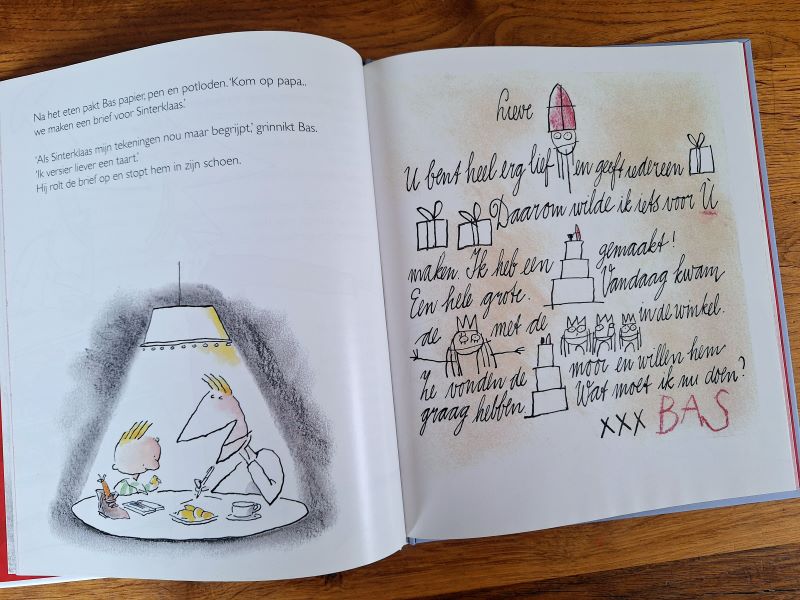 Na het eten pakt Bas papier, pen en potloden. 'Kom op papa..
we maken een brief voor Sinterklaas.'
'Als Sinterklaas mijn tekeningen nou maar begrijpt,' grinnikt Bas.
'Ik versier liever een taart.'
Hij rolt de brief op en stopt hem in zijn schoen.
Lieve
U bent heel erg lief en geeft iedereen
Daarom wilde ik iets voor Ù
maken. Ik heb een gemaakt!
Een hele grote. Vandaag kwam
de met de in de winkel.
Ze vonden de mooi en willen hem
graag hebben. Wat moet ik nu doen?
XXX BAS